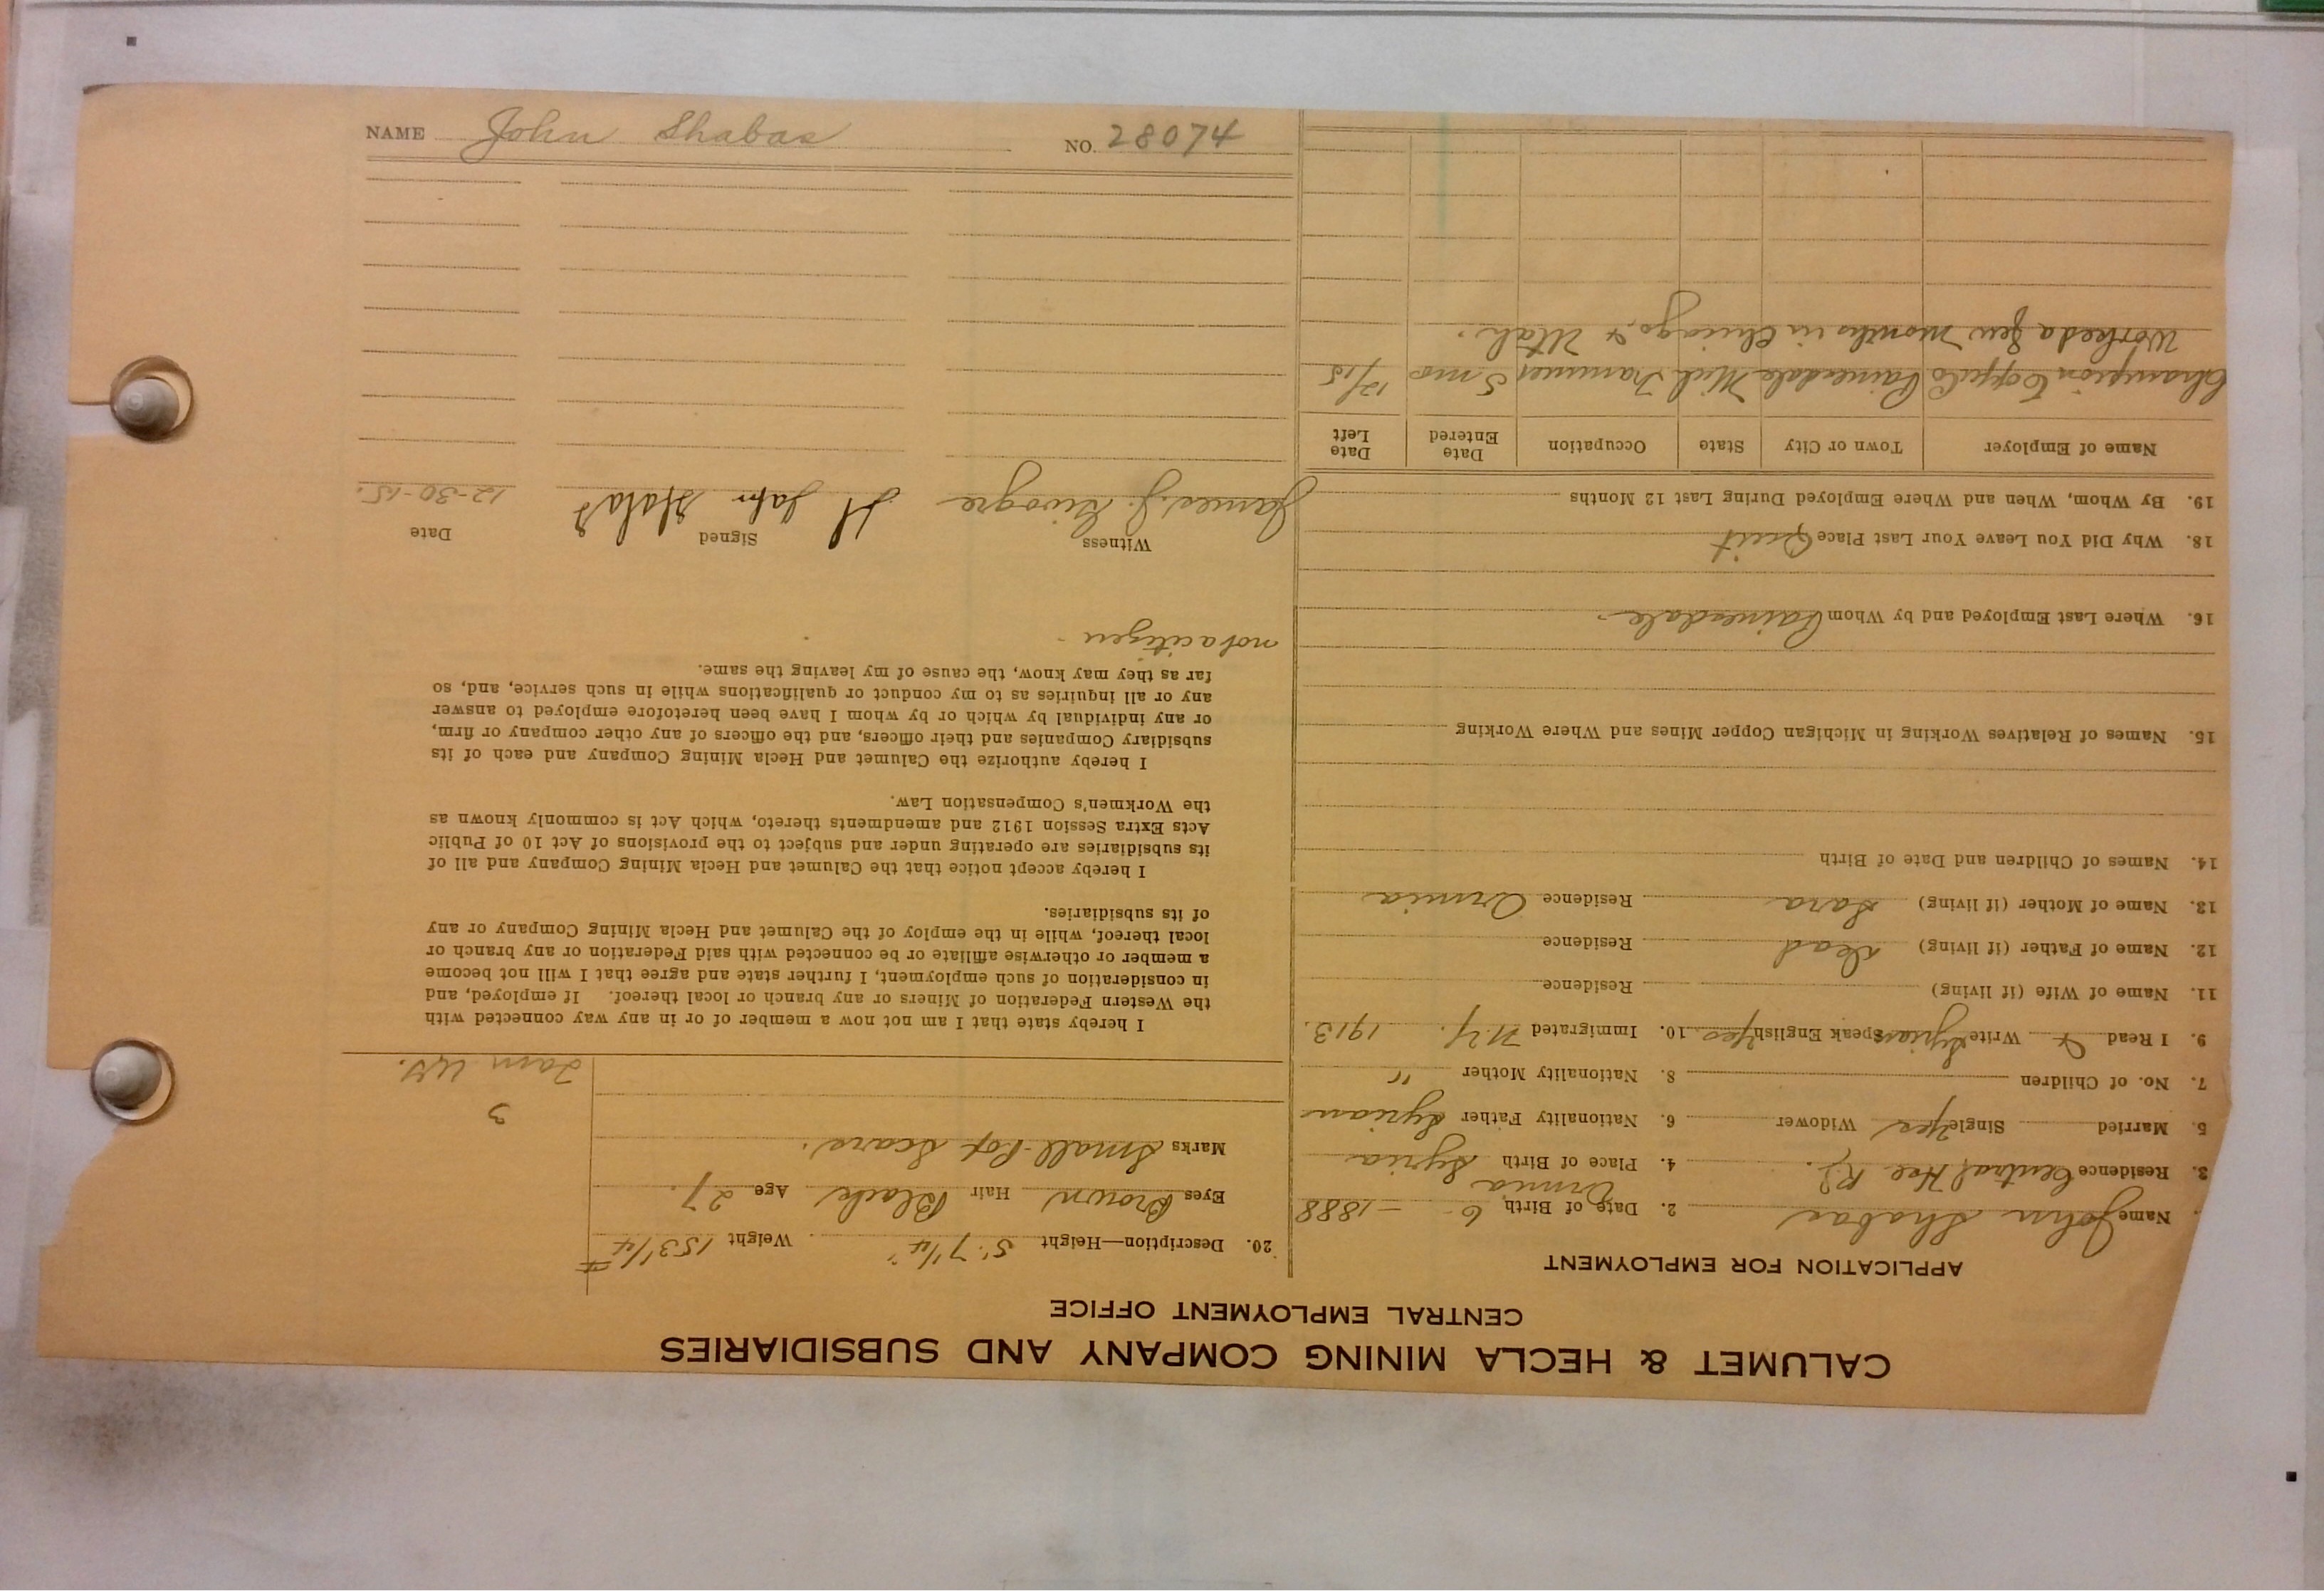 CALUMET & HECLA MINING COMPANY AND SUBSIDIARIES
CENTRAL EMPLOYMENT OFFICE
APPLICATION FOR EMPLOYMENT
Name John Shabas 2. Date of Birth 6 - 1888
3. Residence Central Hse R.J. 4. Place of Birth Ormia Syria
5. Married Single Yes Widower 6. Nationality Father Syrian
7. No. of Children 8. Nationality Mother "
9. I Read & Write Syrian Speak English Yes 10. Immigrated N.Y. 1913.
11. Name of Wife (if living) Residence
12. Name of Father (if living) Dead Residence
13. Name of Mother (if living) Sara Residence Ormia
14. Names of Children and Date of Birth
15. Names of Relatives Working in Michigan Copper Mines and Where Working
16. Where Last Employed and by Whom Painesdale.
18. Why Did You Leave Your Last Place Quit
19. By Whom, When and Where Employed During Last 12 Months
Name of Employer Town or City State Occupation Date Entered Date Left
Champion Copper Co Painesdale Mich Trammer 5 mos 12/15
Worked a few months in Chicago & Utah.
20. Description—Height 5' 7 1/4" Weight 153 1/4 #
Eyes Brown Hair Black Age 27.
Marks Small-Pox Scars.
3
Tam
I hereby state that I am not now a member of or in any way connected with
the Western Federation of Miners or any branch or local thereof. If employed, and
in consideration of such employment, I further state and agree that I will not become
a member or otherwise affiliate or be connected with said Federation or any branch or
local thereof, while in the employ of the Calumet and Hecla Mining Company or any
of its subsidiaries.
I hereby accept notice that the Calumet and Hecla Mining Company and all of
its subsidiaries are operating under and subject to the provisions of Act 10 of Public
Acts Extra Session 1912 and amendments thereto, which Act is commonly known as
the Workmen's Compensation Law.
I hereby authorize the Calumet and Hecla Mining Company and each of its
subsidiary Companies and their officers, and the officers of any other company or firm,
or any individual by which or by whom I have been heretofore employed to answer
any or all inquiries as to my conduct or qualifications while in such service, and, so
far as they may know, the cause of my leaving the same.
not a citizen -
Witness Signed Date
James J. 12-30-15.
NAME John Shabas NO. 28074